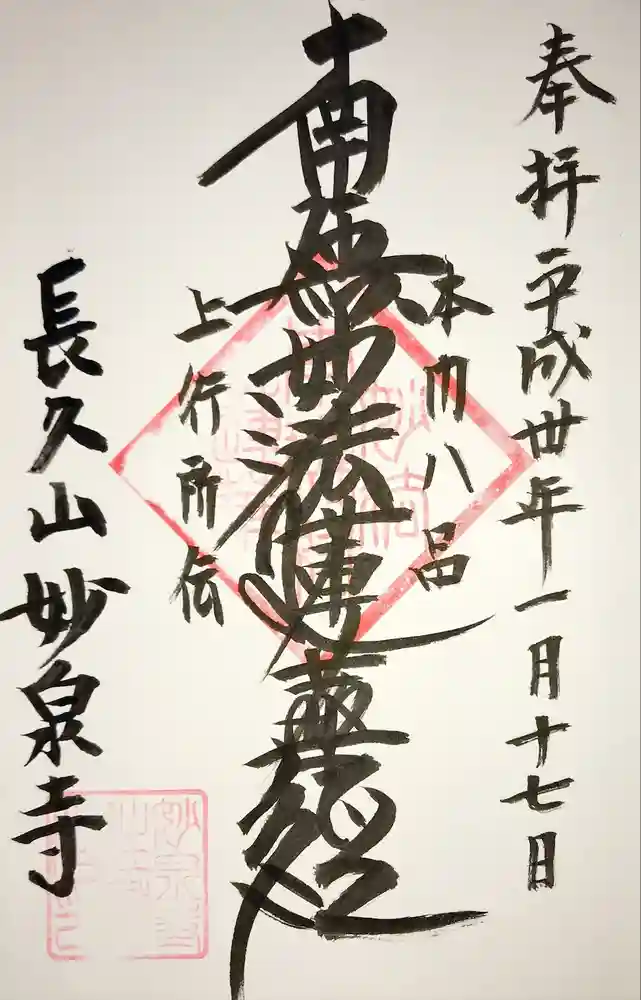 奉拝 平成卅年一月十七日
本門八品
南無妙法蓮華経
上行所伝
長久山妙泉寺